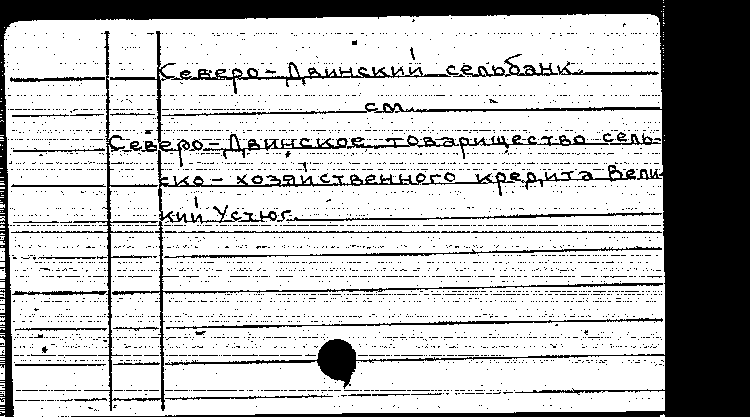 Северо-Двинский сельбанк.
см.
Северо-Двинское товарищество сель-
ско-хозяйственного кредита Вели
кий Устюг.